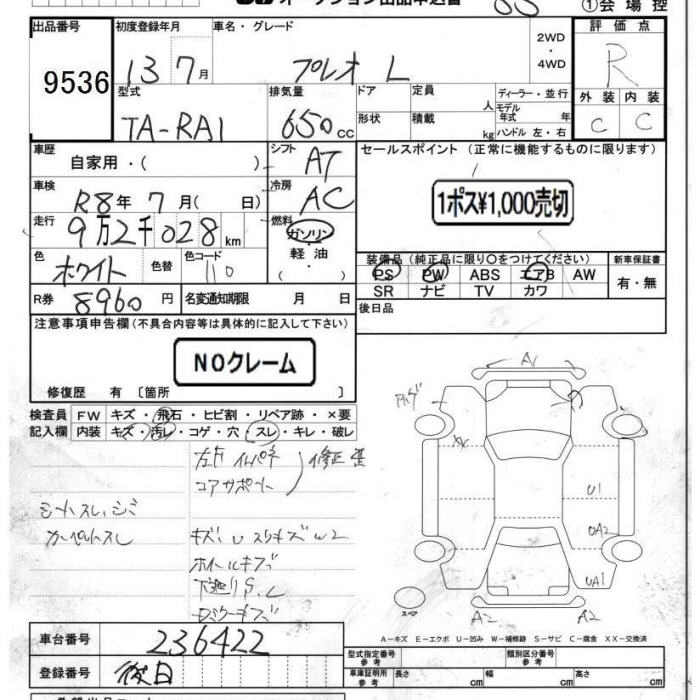 ①会場控
出品番号
9536
初度登録年月
13 7月
車名・グレード
プレオ L
2WD
・
4WD
評価点
R
外装 内装
C C
型式
TA-RA1
排気量
650cc
ドア
定員
人
形状
積載
kg
ディーラー・並行
モデル
年式 年
ハンドル 左・右
車歴
自家用・( )
シフト
AT
セールスポイント (正常に機能するものに限ります)
車検
R8年 7月( 日)
冷房
AC
1ポス¥1,000売切
走行
9万2千028km
燃料
ガソリン
・
軽油
・
色
ホワイト
色替
色コード
110
装備品 (純正品に限り○をつけてください)
PS PW ABS エアB AW
SR ナビ TV カワ
新車保証書
有・無
R券
8960円
名変通知期限 月 日
後日品
注意事項申告欄 (不具合内容等は具体的に記入して下さい)
NOクレーム
修復歴 有 〔箇所 〕
検査員
記入欄
FW キズ・飛石・ヒビ割・リペア跡・×要
内装 キズ・汚レ・コゲ・穴・スレ・キレ・破レ
コアサポート
修正
シートスレ、シミ
カーペットスレ
ホイールキズ
下廻りS、C
A1
U1
UA2
UA1
スペア
A2
A2
A-キズ E-エクボ U-凹み W-補修跡 S-サビ C-腐食 XX-交換済
車台番号
236422
登録番号
後日
型式指定番号
参考
類別区分番号
参考
車庫証明用
参考
長さ cm
幅 cm
高さ cm